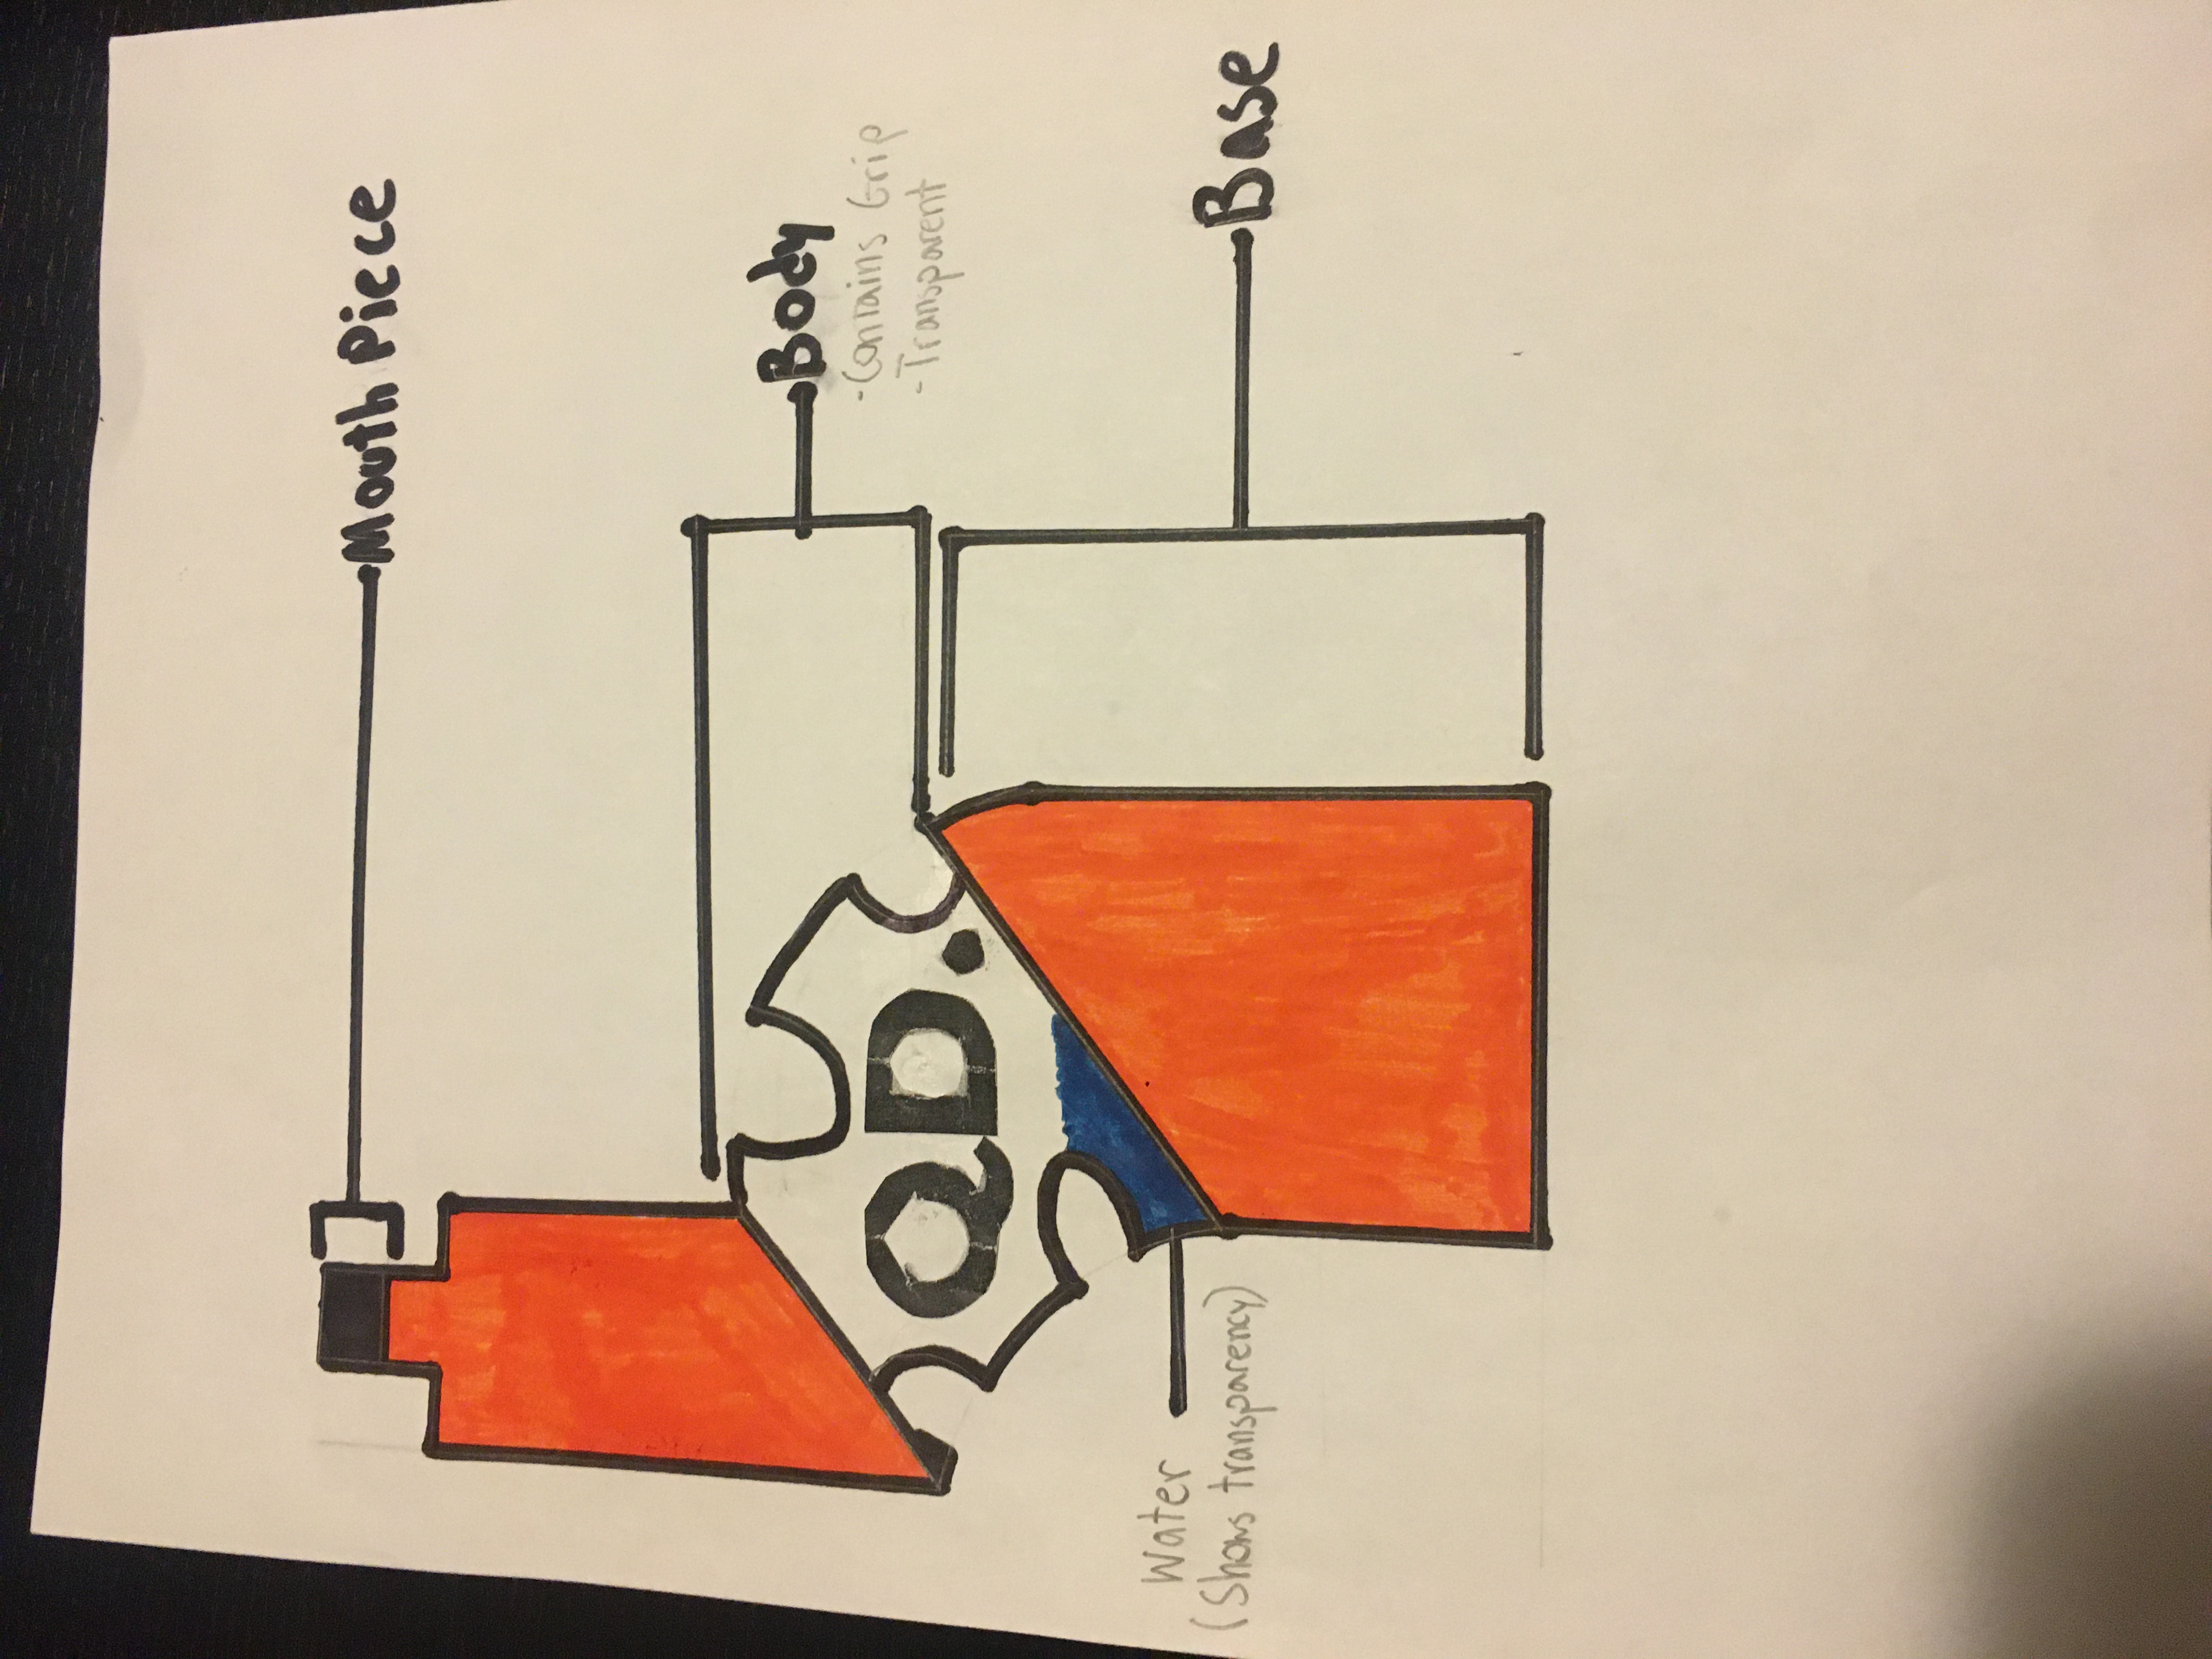 Mouth Piece
Body
-Contains Grip
-Transparent
QD.
Water
(Shows transparency)
Base